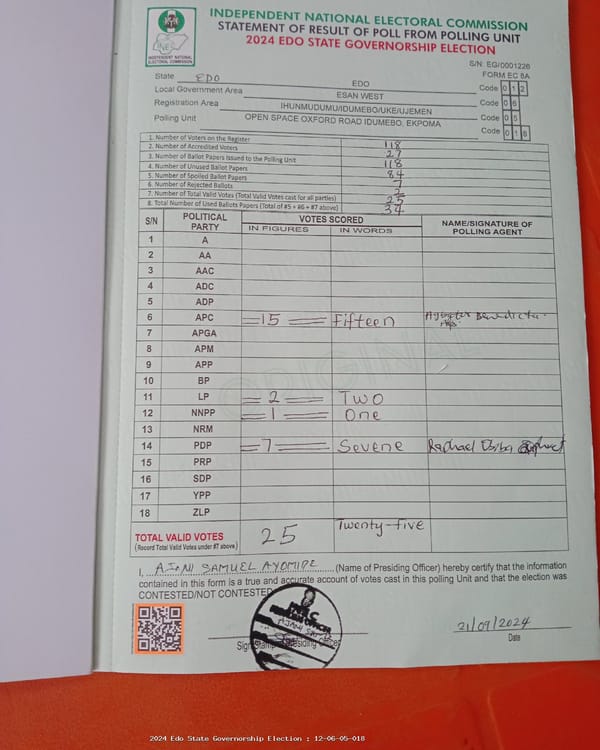 INDEPENDENT NATIONAL ELECTORAL COMMISSION
STATEMENT OF RESULT OF POLL FROM POLLING UNIT
2024 EDO STATE GOVERNORSHIP ELECTION
INEC
INDEPENDENT NATIONAL
ELECTORAL COMMISSION
S/N: EG/0001226
FORM EC 8A
State EDO EDO Code 0 1 2
Local Government Area ESAN WEST Code 0 6
Registration Area IHUNMUDUMU/IDUMEBO/UKE/UJEMEN Code 0 5
Polling Unit OPEN SPACE OXFORD ROAD IDUMEBO, EKPOMA Code 0 1 8
1. Number of Voters on the Register 118
2. Number of Accredited Voters 27
3. Number of Ballot Papers Issued to the Polling Unit 118
4. Number of Unused Ballot Papers 84
5. Number of Spoiled Ballot Papers 7
6. Number of Rejected Ballots 2
7. Number of Total Valid Votes (Total Valid Votes cast for all parties) 25
8. Total Number of Used Ballots Papers (Total of #5 + #6 + #7 above) 34
S/N POLITICAL PARTY VOTES SCORED NAME/SIGNATURE OF POLLING AGENT
IN FIGURES IN WORDS
1 A
2 AA
3 AAC
4 ADC
5 ADP
6 APC =15= Fifteen
7 APGA
8 APM
9 APP
10 BP
11 LP =2= Two
12 NNPP =1= One
13 NRM
14 PDP =7= Sevene Raphael
15 PRP
16 SDP
17 YPP
18 ZLP
TOTAL VALID VOTES 25 Twenty-five
(Record Total Valid Votes under #7 above)
I, AJANI SAMUEL AYOMIDE (Name of Presiding Officer) hereby certify that the information
contained in this form is a true and accurate account of votes cast in this polling Unit and that the election was
CONTESTED/NOT CONTESTED
21/09/2024
Date
2024 Edo State Governorship Election : 12-06-05-018